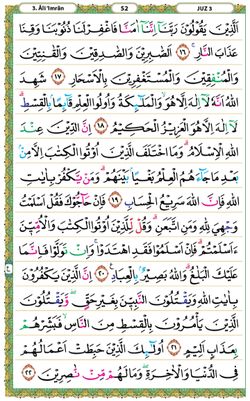 3. Âli 'Imrân 52 JUZ 3
الَّذِينَ يَقُولُونَ رَبَّنَا إِنَّنَا آمَنَّا فَاغْفِرْ لَنَا ذُنُوبَنَا وَقِنَا
عَذَابَ النَّارِ ١٦ الصَّابِرِينَ وَالصَّادِقِينَ وَالْقَانِتِينَ
وَالْمُنْفِقِينَ وَالْمُسْتَغْفِرِينَ بِالْأَسْحَارِ ١٧ شَهِدَ
اللَّهُ أَنَّهُ لَا إِلَهَ إِلَّا هُوَ وَالْمَلَائِكَةُ وَأُولُو الْعِلْمِ قَائِمًا بِالْقِسْطِ
لَا إِلَهَ إِلَّا هُوَ الْعَزِيزُ الْحَكِيمُ ١٨ إِنَّ الدِّينَ عِنْدَ
اللَّهِ الْإِسْلَامُ وَمَا اخْتَلَفَ الَّذِينَ أُوتُوا الْكِتَابَ إِلَّا مِنْ
بَعْدِ مَا جَاءَهُمُ الْعِلْمُ بَغْيًا بَيْنَهُمْ وَمَنْ يَكْفُرْ بِآيَاتِ
اللَّهِ فَإِنَّ اللَّهَ سَرِيعُ الْحِسَابِ ١٩ فَإِنْ حَاجُّوكَ فَقُلْ أَسْلَمْتُ
وَجْهِيَ لِلَّهِ وَمَنِ اتَّبَعَنِ وَقُلْ لِلَّذِينَ أُوتُوا الْكِتَابَ وَالْأُمِّيِّينَ
أَأَسْلَمْتُمْ فَإِنْ أَسْلَمُوا فَقَدِ اهْتَدَوْا وَإِنْ تَوَلَّوْا فَإِنَّمَا
عَلَيْكَ الْبَلَاغُ وَاللَّهُ بَصِيرٌ بِالْعِبَادِ ٢٠ إِنَّ الَّذِينَ يَكْفُرُونَ
بِآيَاتِ اللَّهِ وَيَقْتُلُونَ النَّبِيِّينَ بِغَيْرِ حَقٍّ وَيَقْتُلُونَ
الَّذِينَ يَأْمُرُونَ بِالْقِسْطِ مِنَ النَّاسِ فَبَشِّرْهُمْ
بِعَذَابٍ أَلِيمٍ ٢١ أُولَئِكَ الَّذِينَ حَبِطَتْ أَعْمَالُهُمْ
فِي الدُّنْيَا وَالْآخِرَةِ وَمَا لَهُمْ مِنْ نَاصِرِينَ ٢٢